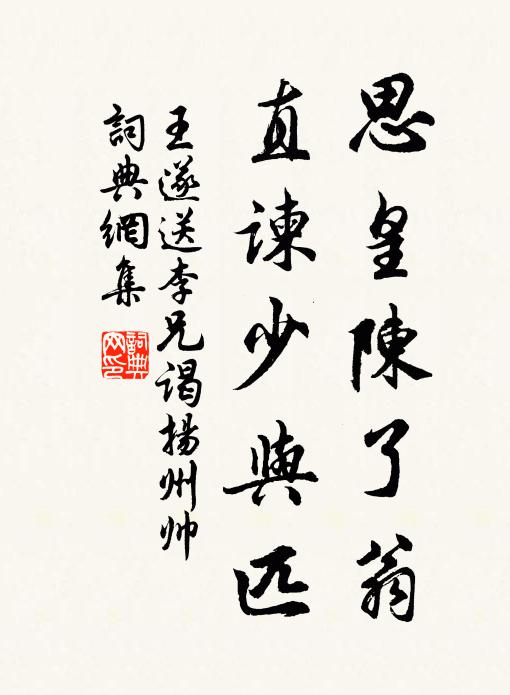 思皇陳了翁
直諫少與匹
王遂送李兄謁揚州帅
詞典網集
詞典网印